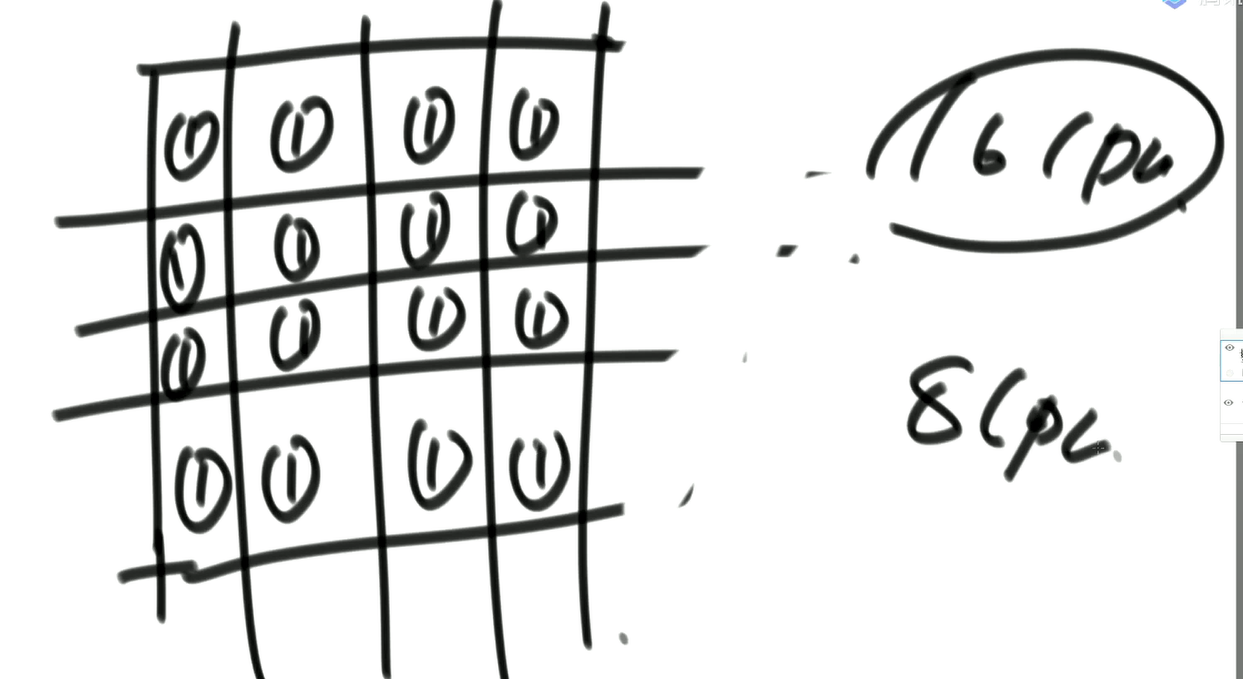 ① ① ① ①
① ① ① ①
① ① ① ①
① ① ① ①
16 cpu
8 cpu